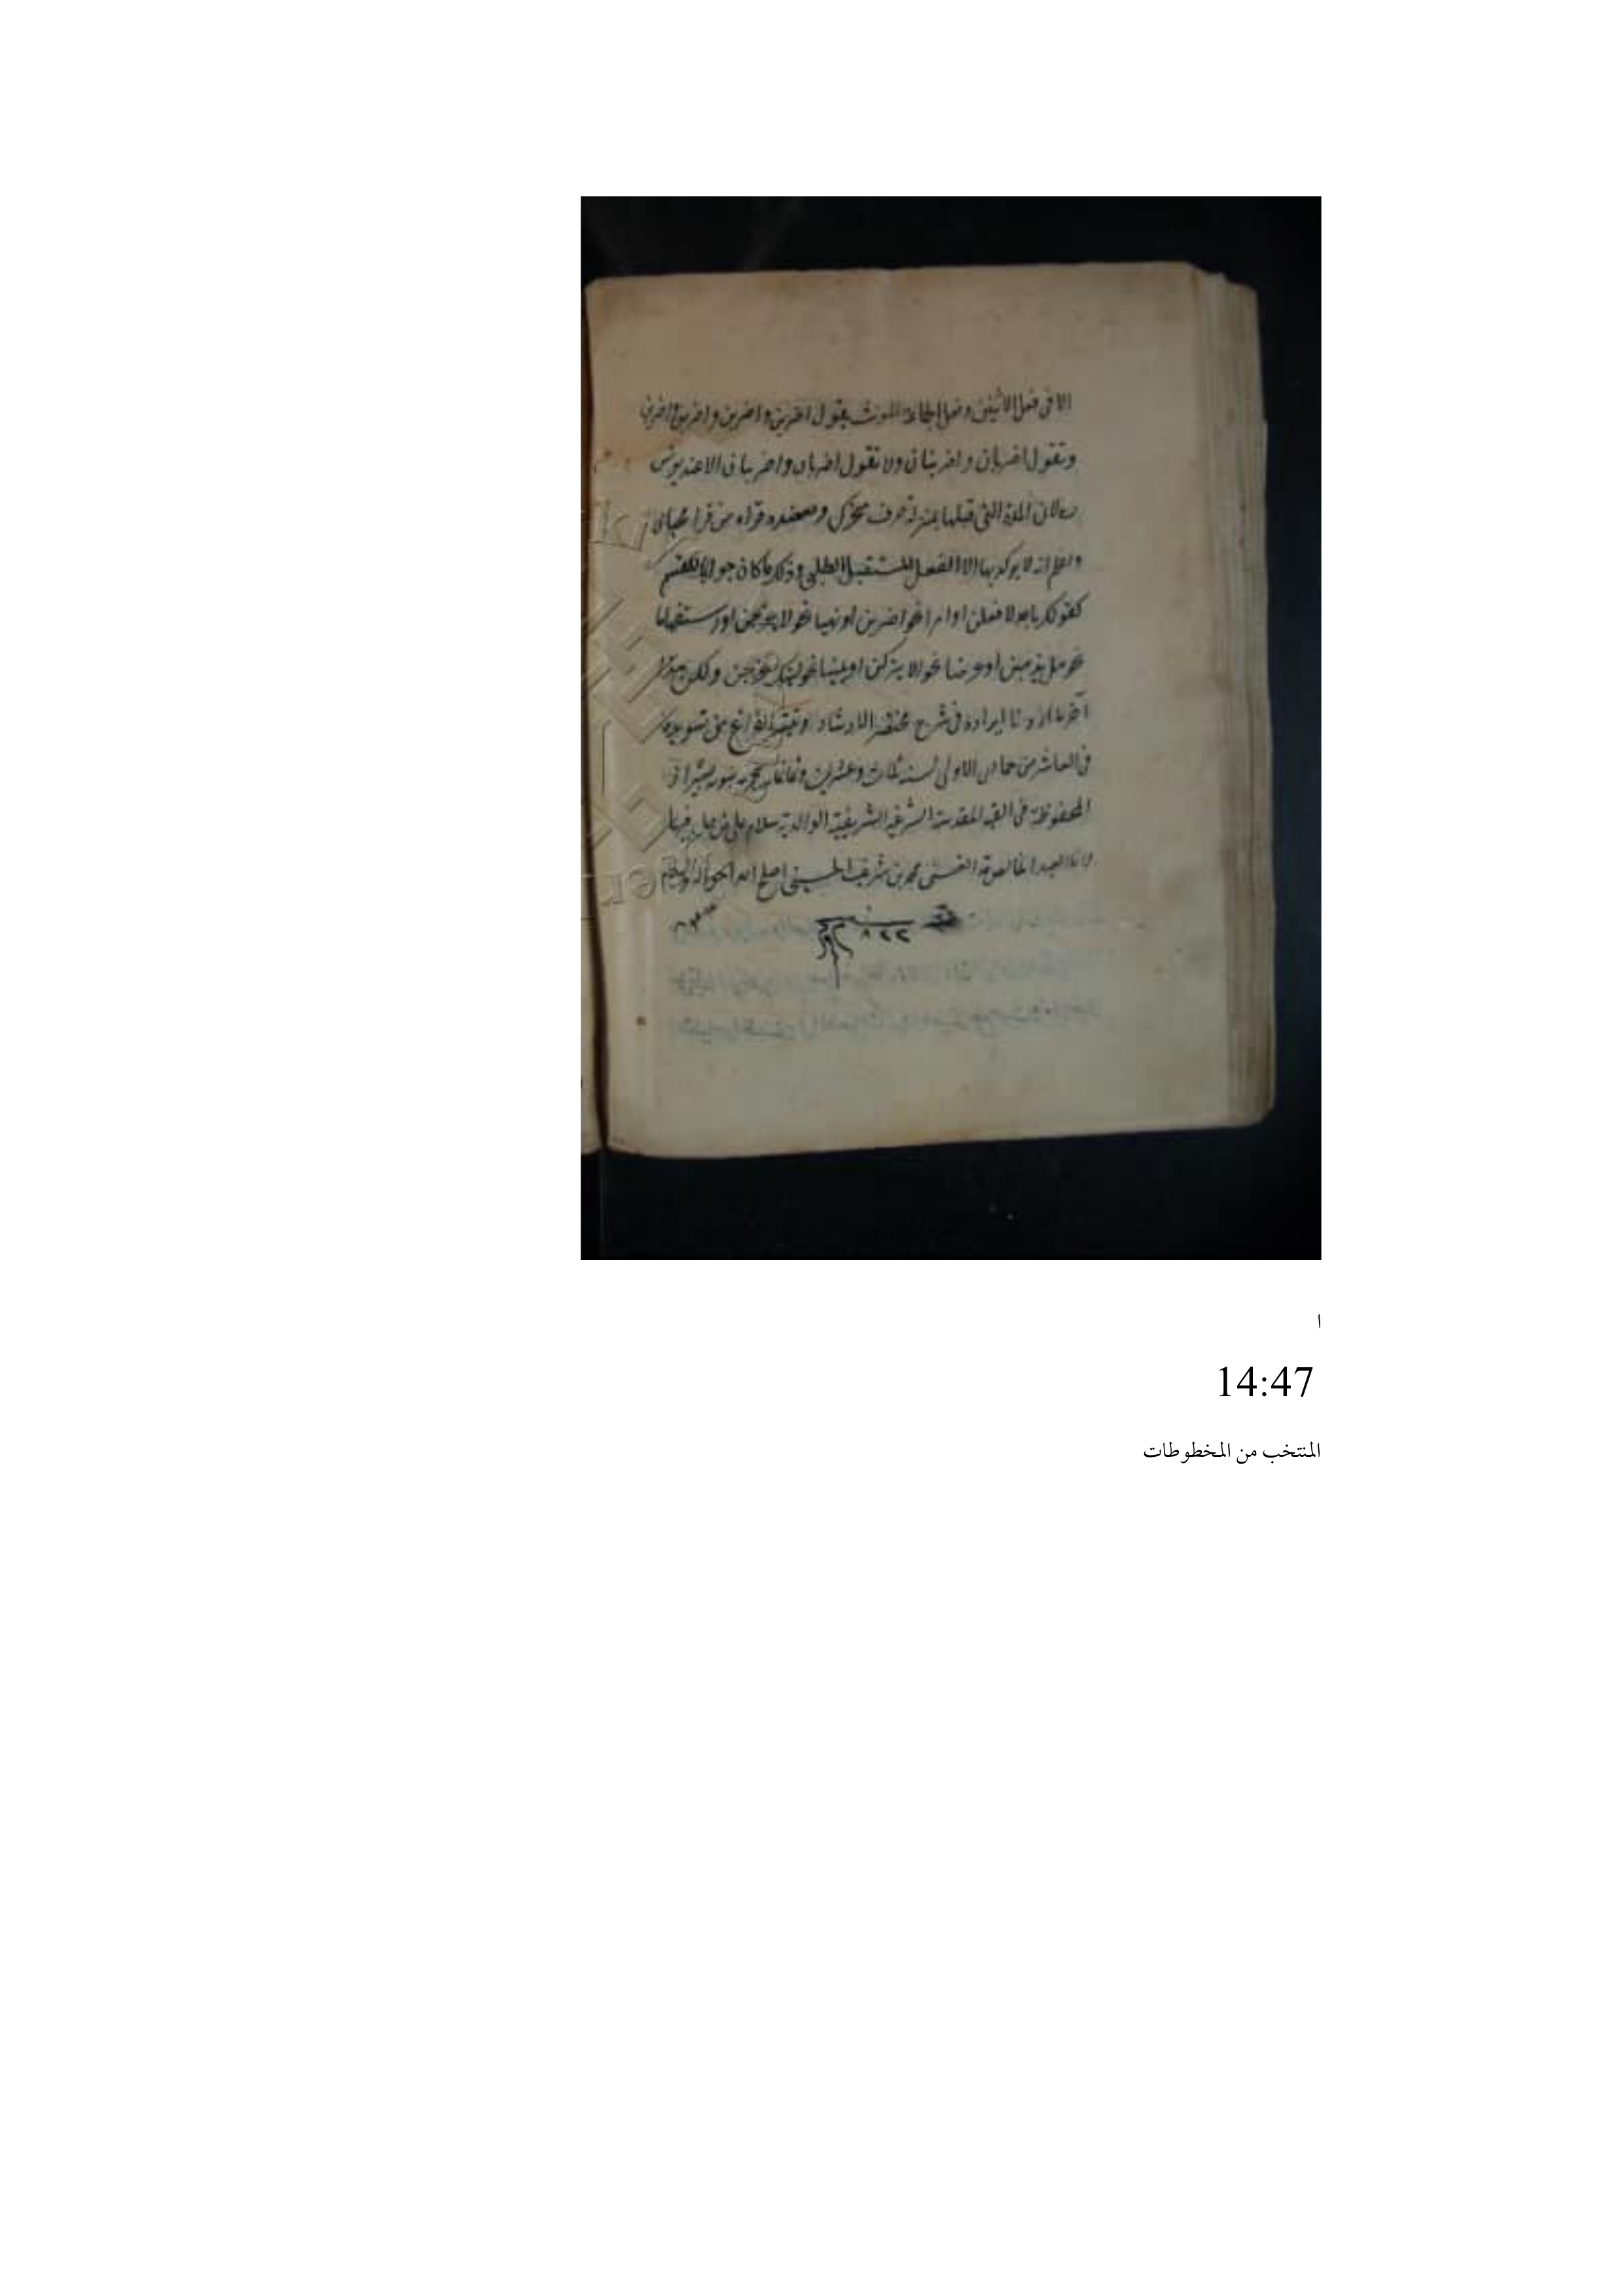 الا في فعل الاثنين وفعل الجماعة المونث يقول اضربن واضربن واضربن واضربن
وتقول اضربان واضربنان ولا تقول اضربان واضربنان الا عند يونس
لان المدة التي قبلها بمنزلة حرف متحرك ويعضده قراه من قرا محياي
واعلم انه لا يوكد بها الا الفعل المستقبل الطلبي وذلك ما كان جوابا للقسم
كقولك بالله لافعلن او امرا نحو اضربن او نهيا نحو لا يخرجن او استفهاما
نحو هل يذهبن او عرضا نحو الا ينزلن او تمنيا نحو ليتك تخرجن ولكن هذا
آخر ما اردنا ايراده في شرح مختصر الارشاد وتيسر الفراغ من تسويده
في العاشر من جمادى الاولى لسنة ثلاث وعشرين وثمانمايه هجريه نبويه بشيراز
المحفوظة في القبه المقدسة الشرفيه الشريفية الوالدية سلام على من
محمد بن شريف الحسيني اصلح الله احواله
ا
14:47
المنتخب من المخطوطات